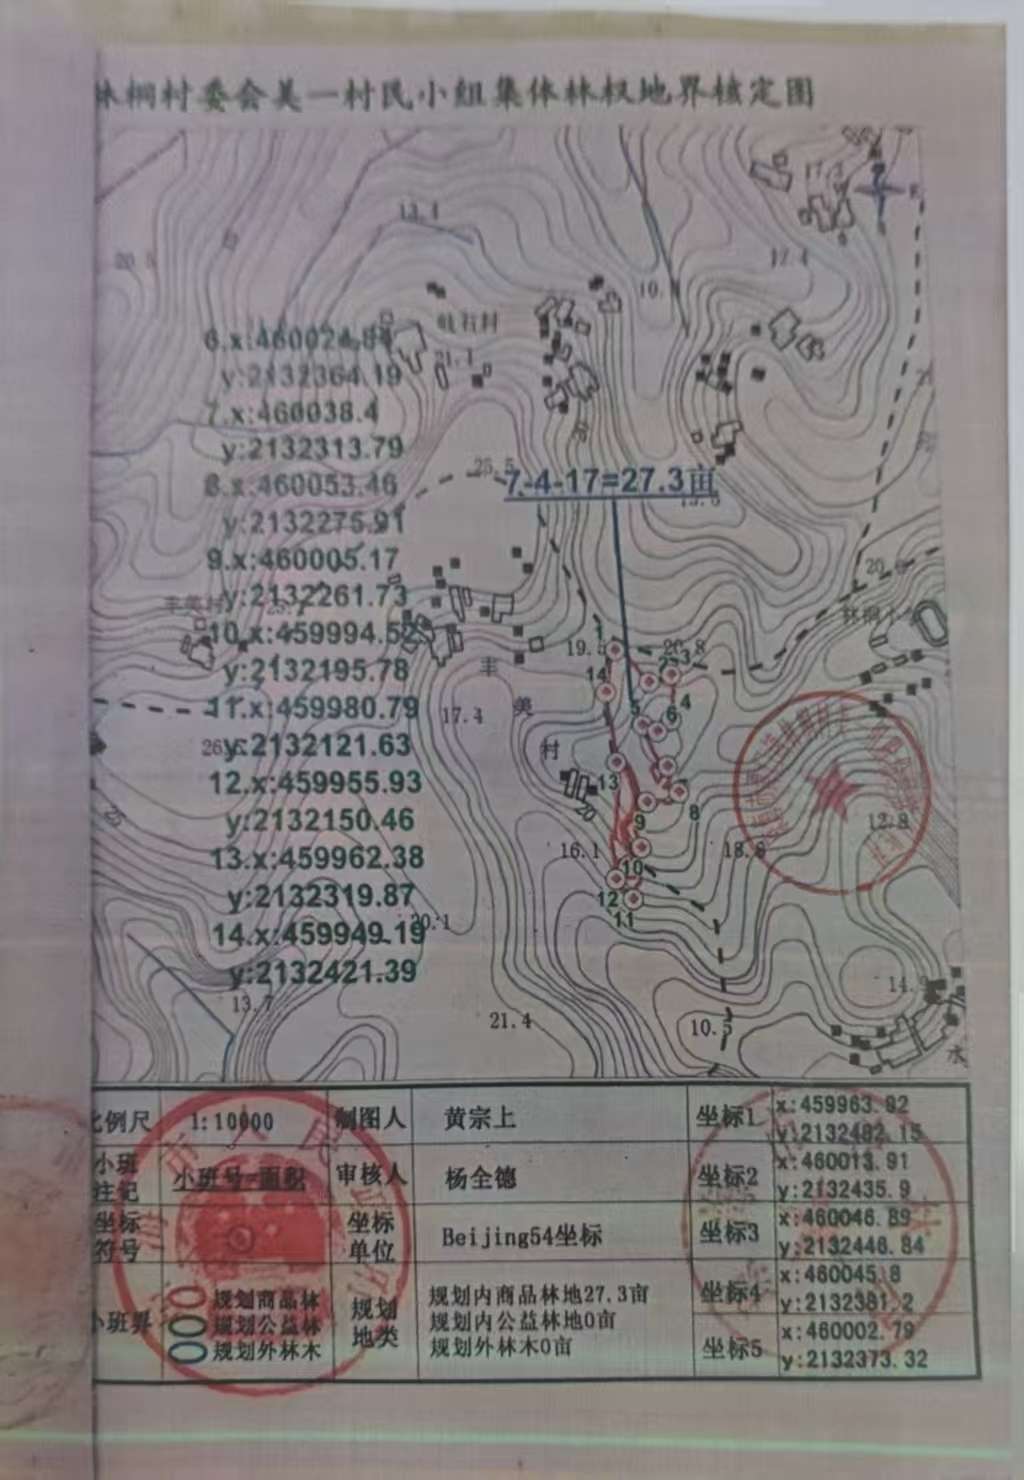 林桐村委会美一村民小组集体林权地界核定图
13.4
20.5
17.4
岐石村
21.1
6.x:460024.84
y:2132364.19
7.x:460038.4
y:2132313.79
8.x:460053.46
y:2132275.91
9.x:460005.17
y:2132261.73
10.x:459994.52
y:2132195.78
11.x:459980.79
y:2132121.63
12.x:459955.93
y:2132150.46
13.x:459962.38
y:2132319.87
14.x:459949.19
y:2132421.39
25.5
7-4-17=27.3亩
20.6
丰美村
19.5
20.8
1
2
3
14
4
5
6
丰
美
村
17.4
13
7
8
20
9
12.8
16.1
18.8
10
12
11
20.1
13.7
21.4
10.5
14.9
水
比例尺 1:10000 制图人 黄宗上 坐标1 x:459963.82
y:2132482.15
小班注记 小班号-面积 审核人 杨全德 坐标2 x:460013.91
y:2132435.9
坐标符号 坐标单位 Beijing54坐标 坐标3 x:460046.89
y:2132446.84
小班界 规划商品林 规划地类 规划内商品林地27.3亩 坐标4 x:460045.8
规划公益林 规划内公益林地0亩 y:2132381.2
规划外林木 规划外林木0亩 坐标5 x:460002.79
y:2132373.32